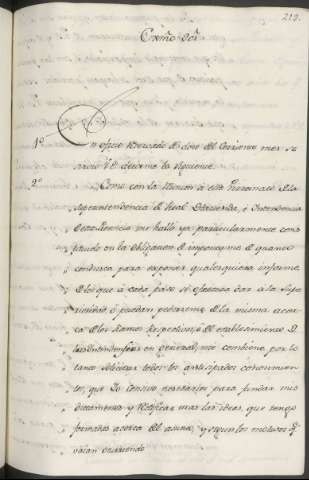 213.
Exmo Sor
1º
En oficio Reservado de doce del Corriente mes se
sirvio V.E. decirme lo siguiente.
2º
Como con la Reunion á este Virreinato de la
Superintendencia de Real Hacienda, é Intendencia
de esta Provincia me hallo ya particularmente cons
tituido en la obligacion de imponerme de quanto
conduzca para exponer qualesquiera informe
de los que á cada paso se ofrezcan dar á la Supe
rioridad, ó puedan pedirseme de la misma acer
ca de los Ramos respectivos del establecimiento de
las Intendencias en general, me combiene, por lo
tanto solicitar todos los anticipados conocimien
tos, que Yo considero necesarios para fundar mis
Dictamenes y rectificar mas las ideas, que tengo
formadas acerca del asunto, y segun los motivos q.
vaian ocurriendo